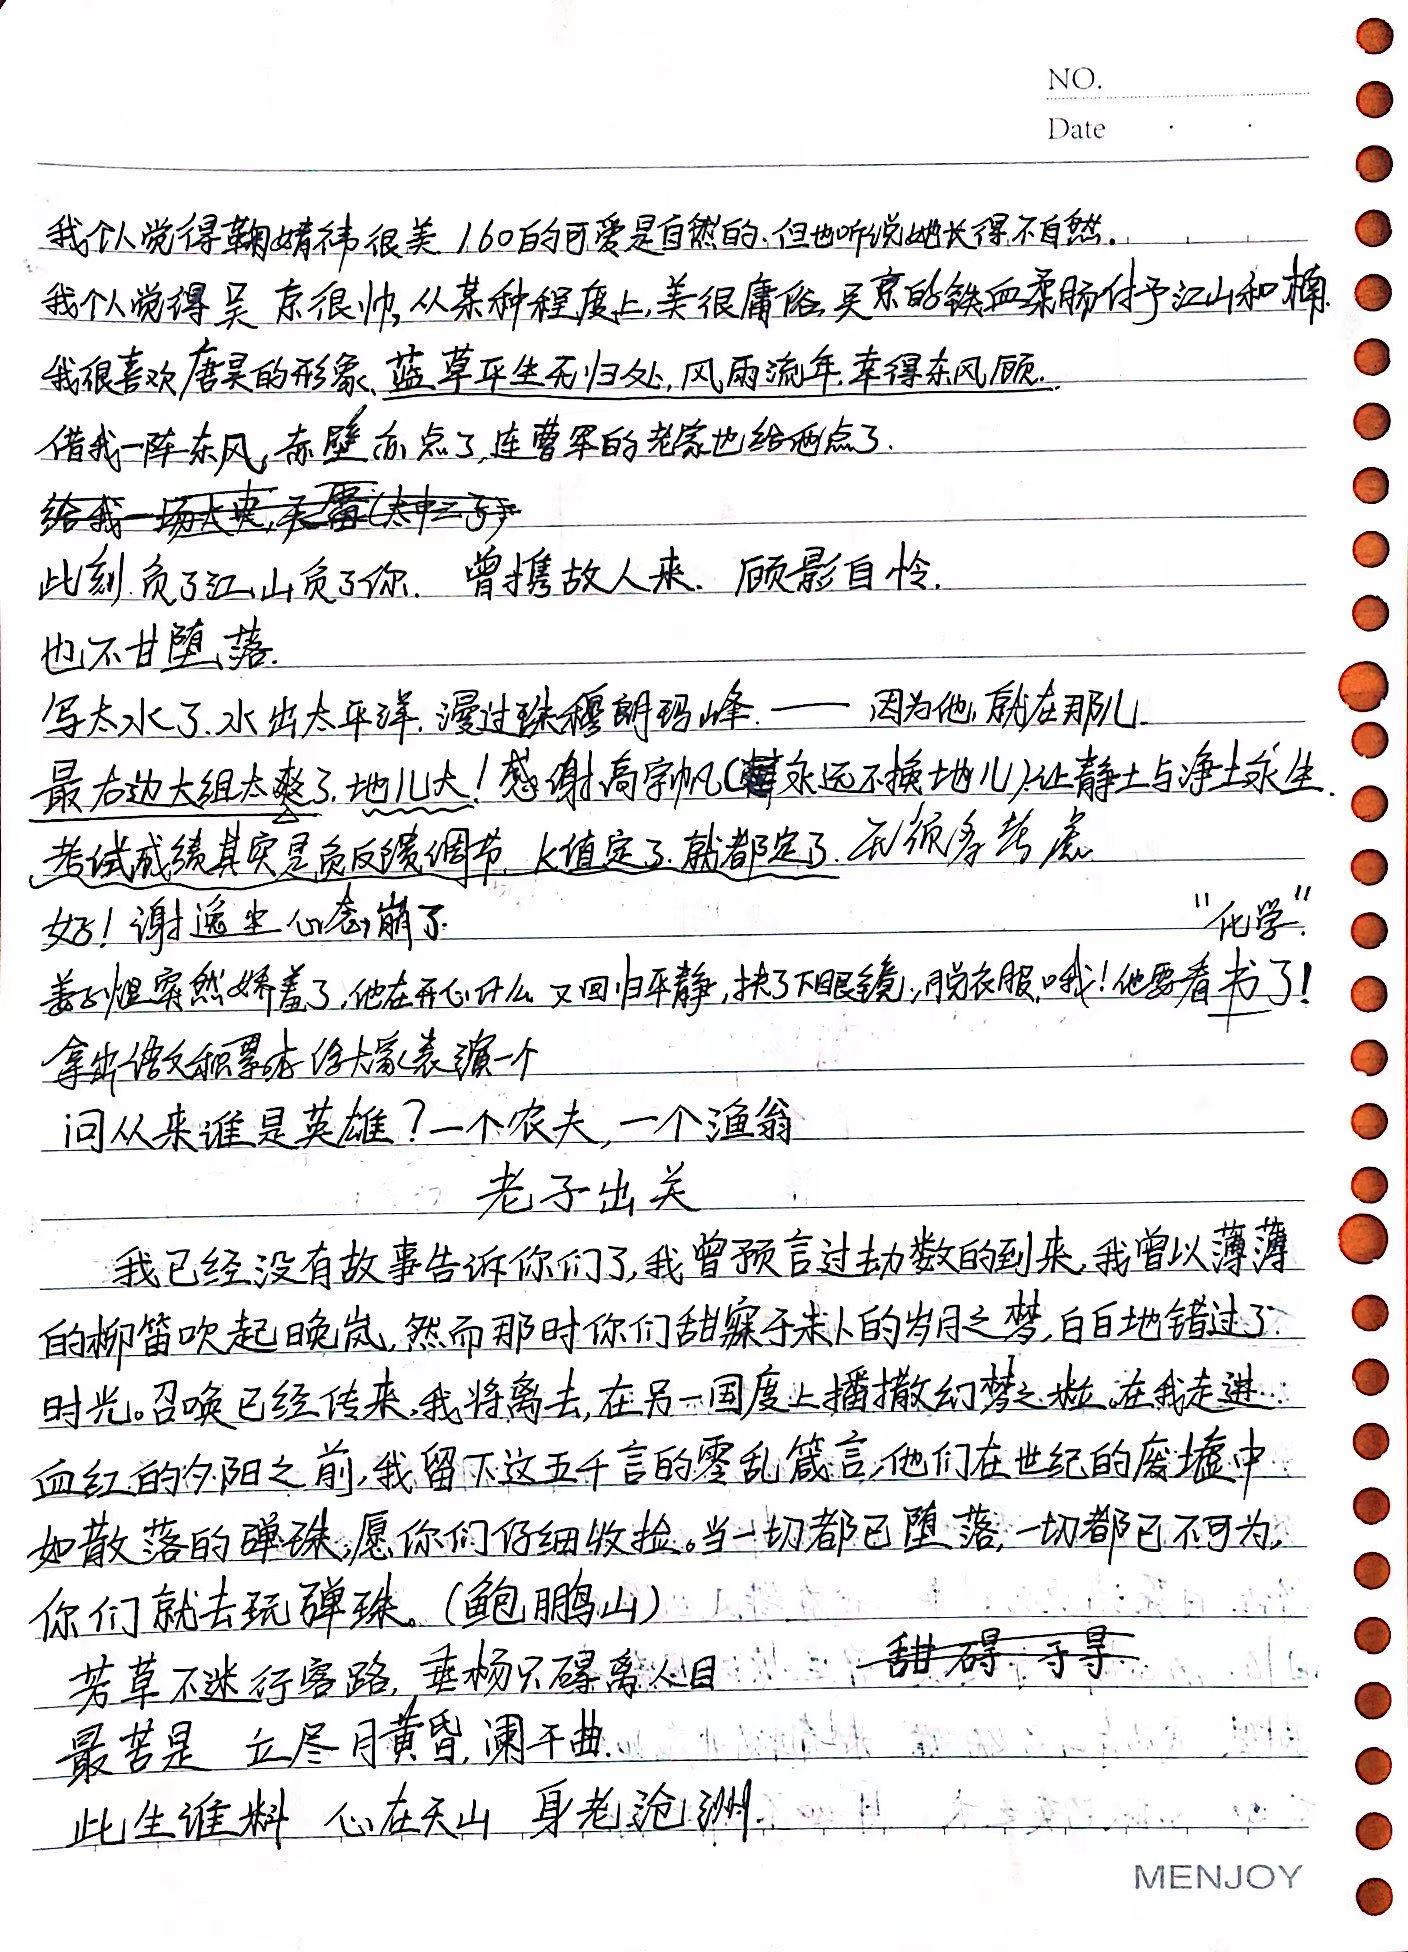 NO.
Date
我个人觉得鞠婧祎很美 160的可爱是自然的.但也听说她长得不自然.
我个人觉得吴京很帅,从某种程度上,美很庸俗,吴京的铁血柔肠付予江山和楠.
我很喜欢唐昊的形象、蓝草平生无归处,风雨流年.幸得东风顾.
借我一阵东风,赤壁亦点了,连曹军的老家也给俩点了.
给我一场大
此刻.负了江山负了你. 曾携故人来. 顾影自怜.
也不甘堕落.
写太水了.水出太平洋.漫过珠穆朗玛峰. —— 因为他,就在那儿.
最右边大组太爽了,地儿大!感谢高宇帆(永远不换地儿)让静土与净土永生.
考试成绩其实是负反馈调节,k值定了.就都定了.无须多考虑
好!谢逸尘心态崩了. "化学".
姜子煜突然娇羞了,他在开心什么 又回归平静,扶了下眼镜,脱衣服,哦!他要看书了!
拿出语文积累本给大家表演一个
问从来谁是英雄?一个农夫,一个渔翁
老子出关
我已经没有故事告诉你们了,我曾预言过劫数的到来,我曾以薄薄
的柳笛吹起晚岚,然而那时你们甜寐于未卜的岁月之梦,白白地错过了
时光。召唤已经传来,我将离去,在另一国度上播撒幻梦之粒。在我走进
血红的夕阳之前,我留下这五千言的零乱箴言,他们在世纪的废墟中
如散落的弹珠,愿你们仔细收捡。当一切都已堕落,一切都已不可为,
你们就去玩弹珠。(鲍鹏山)
甜 碍 于寻
芳草不迷行客路,垂杨只碍离人目
最苦是 立尽月黄昏,阑干曲.
此生谁料 心在天山 身老沧洲.
MENJOY